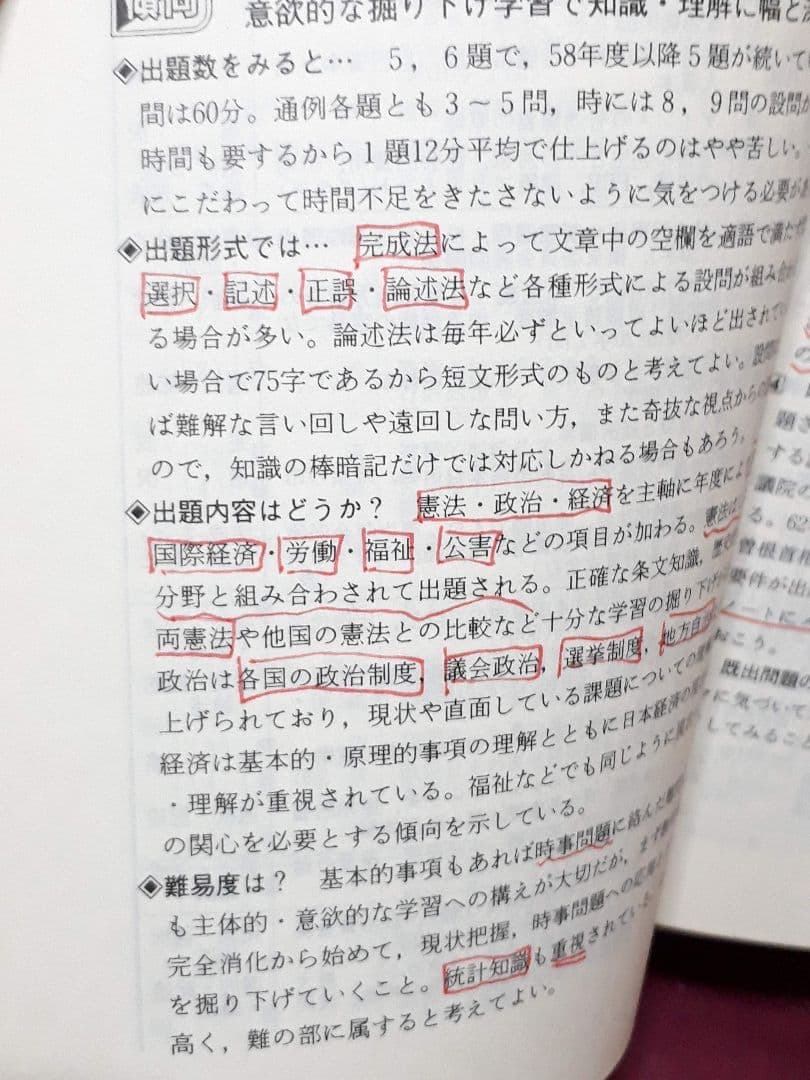 傾向
意欲的な掘り下げ学習で知識・理解に幅と
◈出題数をみると… 5，6題で，58年度以降5題が続いて
間は60分。通例各題とも3～5問，時には8，9問の設問が
時間も要するから1題12分平均で仕上げるのはやや苦しい。
にこだわって時間不足をきたさないように気をつける必要が
◈出題形式では… 完成法によって文章中の空欄を適語で満た
選択・記述・正誤・論述法など各種形式による設問が組み合
る場合が多い。論述法は毎年必ずといってよいほど出されて
い場合で75字であるから短文形式のものと考えてよい。設問
ば難解な言い回しや遠回しな問い方，また奇抜な視点からの
ので，知識の棒暗記だけでは対応しかねる場合もあろう。
◈出題内容はどうか？ 憲法・政治・経済を主軸に年度によ
国際経済・労働・福祉・公害などの項目が加わる。憲法は
分野と組み合わされて出題される。正確な条文知識，
両憲法や他国の憲法との比較など十分な学習の掘り下げ
政治は各国の政治制度，議会政治，選挙制度，地方自
上げられており，現状や直面している課題についての
経済は基本的・原理的事項の理解とともに日本経済の
・理解が重視されている。福祉などでも同じように
の関心を必要とする傾向を示している。
◈難易度は？ 基本的事項もあれば時事問題に絡んだ
も主体的・意欲的な学習への構えが大切だが，まず
完全消化から始めて，現状把握，時事問題への応用
を掘り下げていくこと。統計知識も重視されている
高く，難の部に属すると考えてよい。
の
題さ
する
議院の
る。62
曽根首相
要件が出
ノートに
おこう。
既出問題の
に気づいて
してみること